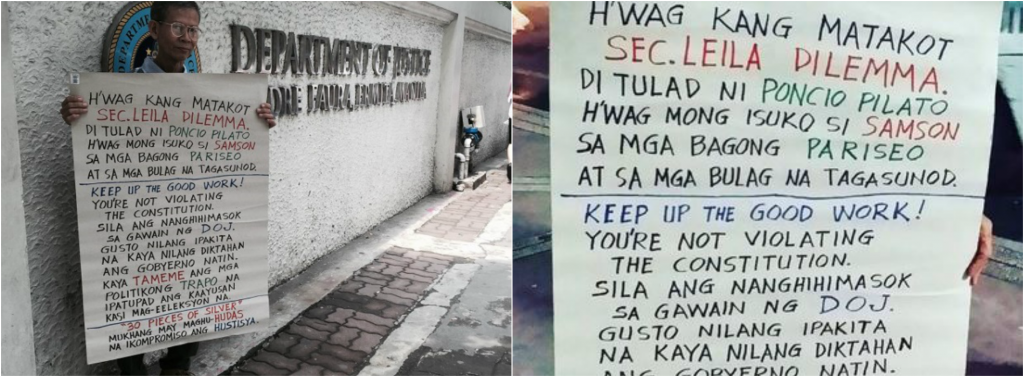 DEPARTMENT OF JUSTICE
PADRE FAURA, ERMITA, MANILA
H'WAG KANG MATAKOT
SEC. LEILA DILEMMA.
DI TULAD NI PONCIO PILATO
H'WAG MONG ISUKO SI SAMSON
SA MGA BAGONG PARISEO
AT SA MGA BULAG NA TAGASUNOD.
KEEP UP THE GOOD WORK!
YOU'RE NOT VIOLATING
THE CONSTITUTION.
SILA ANG NANGHIHIMASOK
SA GAWAIN NG DOJ.
GUSTO NILANG IPAKITA
NA KAYA NILANG DIKTAHAN
ANG GOBYERNO NATIN.
KAYA TAMEME ANG MGA
POLITIKONG TRAPO NA
IPATUPAD ANG KAAYUSAN
KASI MAG-EELEKSYON NA.
"30 PIECES OF SILVER"
MUKHANG MAY MAGHU-HUDAS
NA IKOMPROMISO ANG HUSTISYA.
H'WAG KANG MATAKOT
SEC. LEILA DILEMMA.
DI TULAD NI PONCIO PILATO
H'WAG MONG ISUKO SI SAMSON
SA MGA BAGONG PARISEO
AT SA MGA BULAG NA TAGASUNOD.
KEEP UP THE GOOD WORK!
YOU'RE NOT VIOLATING
THE CONSTITUTION.
SILA ANG NANGHIHIMASOK
SA GAWAIN NG DOJ.
GUSTO NILANG IPAKITA
NA KAYA NILANG DIKTAHAN
ANG GOBYERNO NATIN.